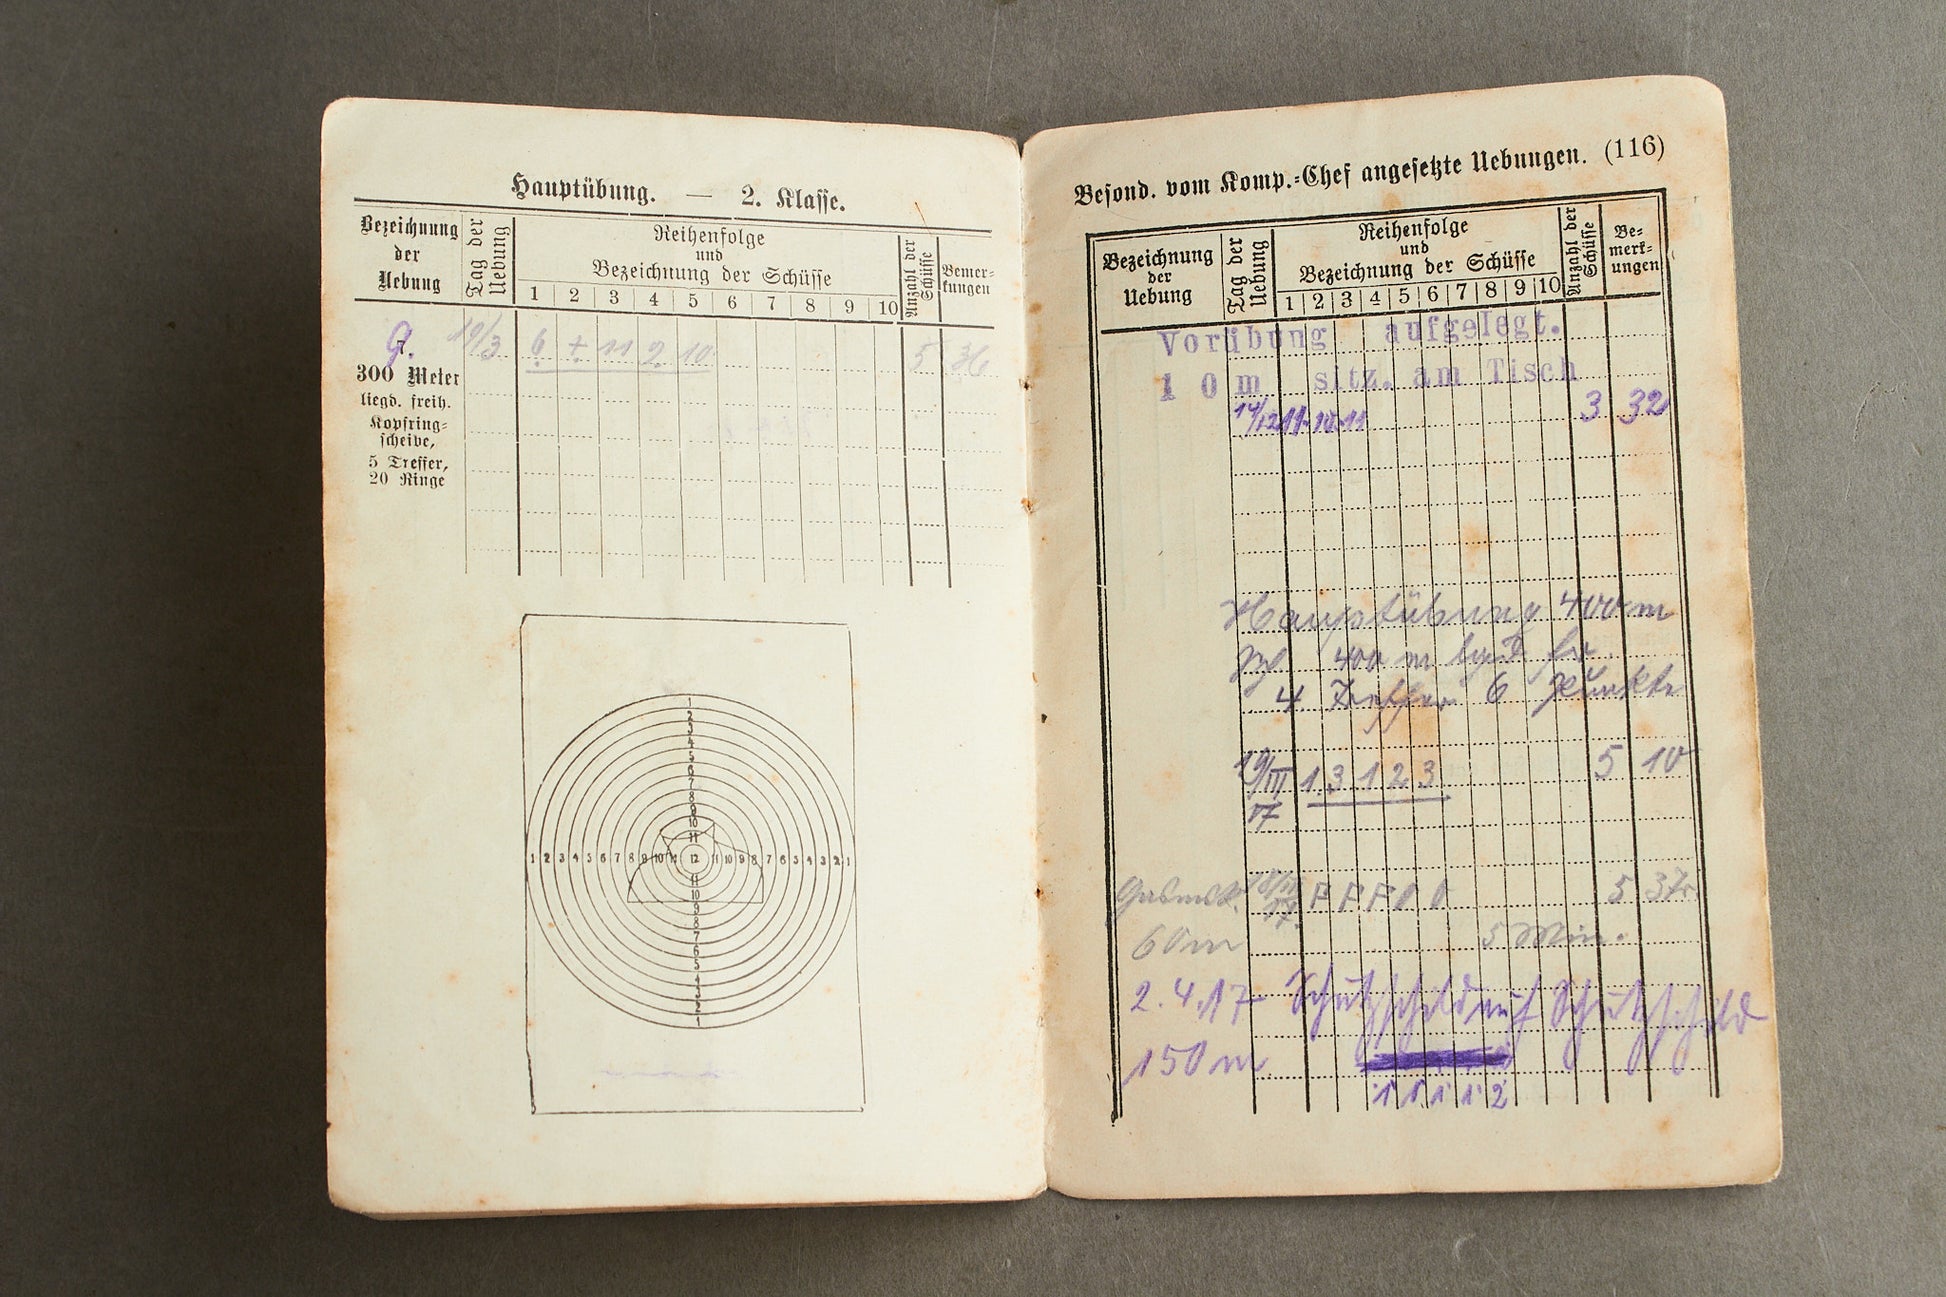 Hauptübung. — 2. Klasse.
Bezeichnung der Uebung
Tag der Uebung
Reihenfolge und Bezeichnung der Schüsse
1 2 3 4 5 6 7 8 9 10
Anzahl der Schüsse
Bemerkungen
g. 19/3 6 7 11 2 10 5 36
300 Meter
liegd. freih.
Kopfring-
scheibe,
5 Treffer,
20 Ringe
1
2
3
4
5
6
7
8
9
10
11
1 2 3 4 5 6 7 8 9 10 11 12 11 10 9 8 7 6 5 4 3 2 1
11
10
9
8
7
6
5
4
3
2
1
Besond. vom Komp.-Chef angesetzte Uebungen. (116)
Bezeichnung der Uebung
Tag der Uebung
Reihenfolge und Bezeichnung der Schüsse
1 2 3 4 5 6 7 8 9 10
Anzahl der Schüsse
Be-
merk-
ungen
Vorübung aufgelegt.
10m sitz. am Tisch
14/12 11. 10. 11 3 32
Hauptübung 400 m
400 m lgd. fr.
4 Treffer 6 Punkte
19/III 1 3 1 2 3 5 10
17
17. F F F 0 0 5 3 Fr.
60 m 5 Min.
2.4.17 Schutzschild auf Schutzschild
150 m
1 1 1 1 2